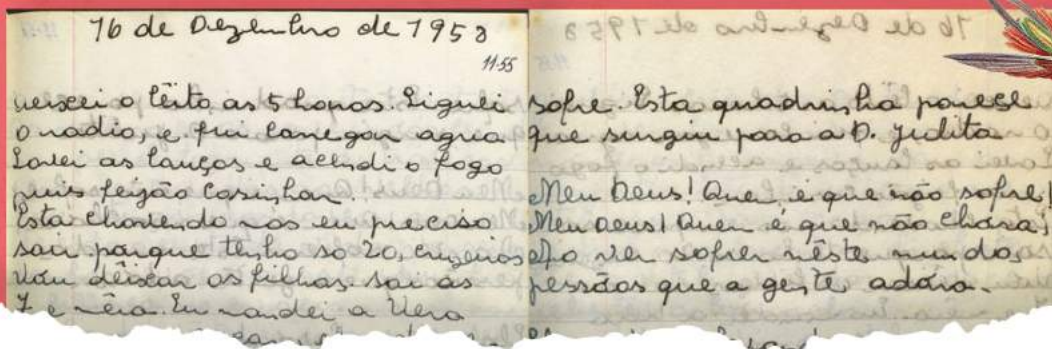 16 de Dezembro de 1958
1155
o lêito as 5 horas. Liguei
o radio, e fui carregar agua
Lavei as lauças e acendi o fogo
puis feijão cosinhar.
Esta chovendo mas eu preciso
sair porque tenho só 20, cruzeiros
Vou dêixar os filhos. sai as
7 e mêia. Eu mandei a Vera
sofre. Esta quadrinha parece
que surgiu para a D. Judita
Meu Deus! Quem é que não sofre!
Meu Deus! Quem é que não chora!
Ao ver sofrer nêste mundo,
pessôas que a gente adóra.